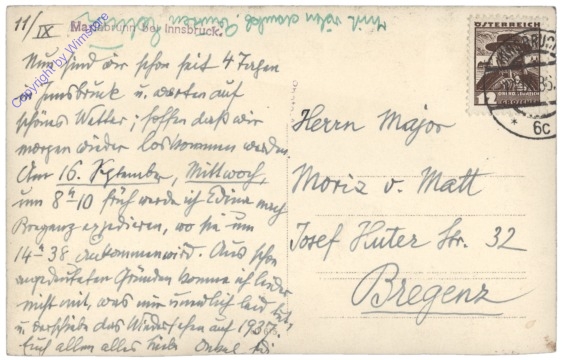 11/IX
Maria brunn bei Innsbruck.
Nun sind wir schon seit 4 Tagen
in Innsbruck u. warten auf
schönes Wetter; hoffen daß wir
morgen wieder loskommen werden.
Am 16. September, Mittwoch,
um 8 h 10 früh werde ich Edina nach
Bregenz expedieren, wo sie um
14 h 38 ankommen wird. Aus schon
angedeuteten Gründen komme ich leider
nicht mit, was mir unendlich leid tut,
u. verschiebe das Wiedersehen auf 1937.
Euch allen alles Liebe Onkel
Herrn Major
Moriz v. Matt
Josef Huter Str. 32
Bregenz
ÖSTERREICH
12
GROSCHEN
INNSBRUCK
* 6c
Copyright by Wimstore